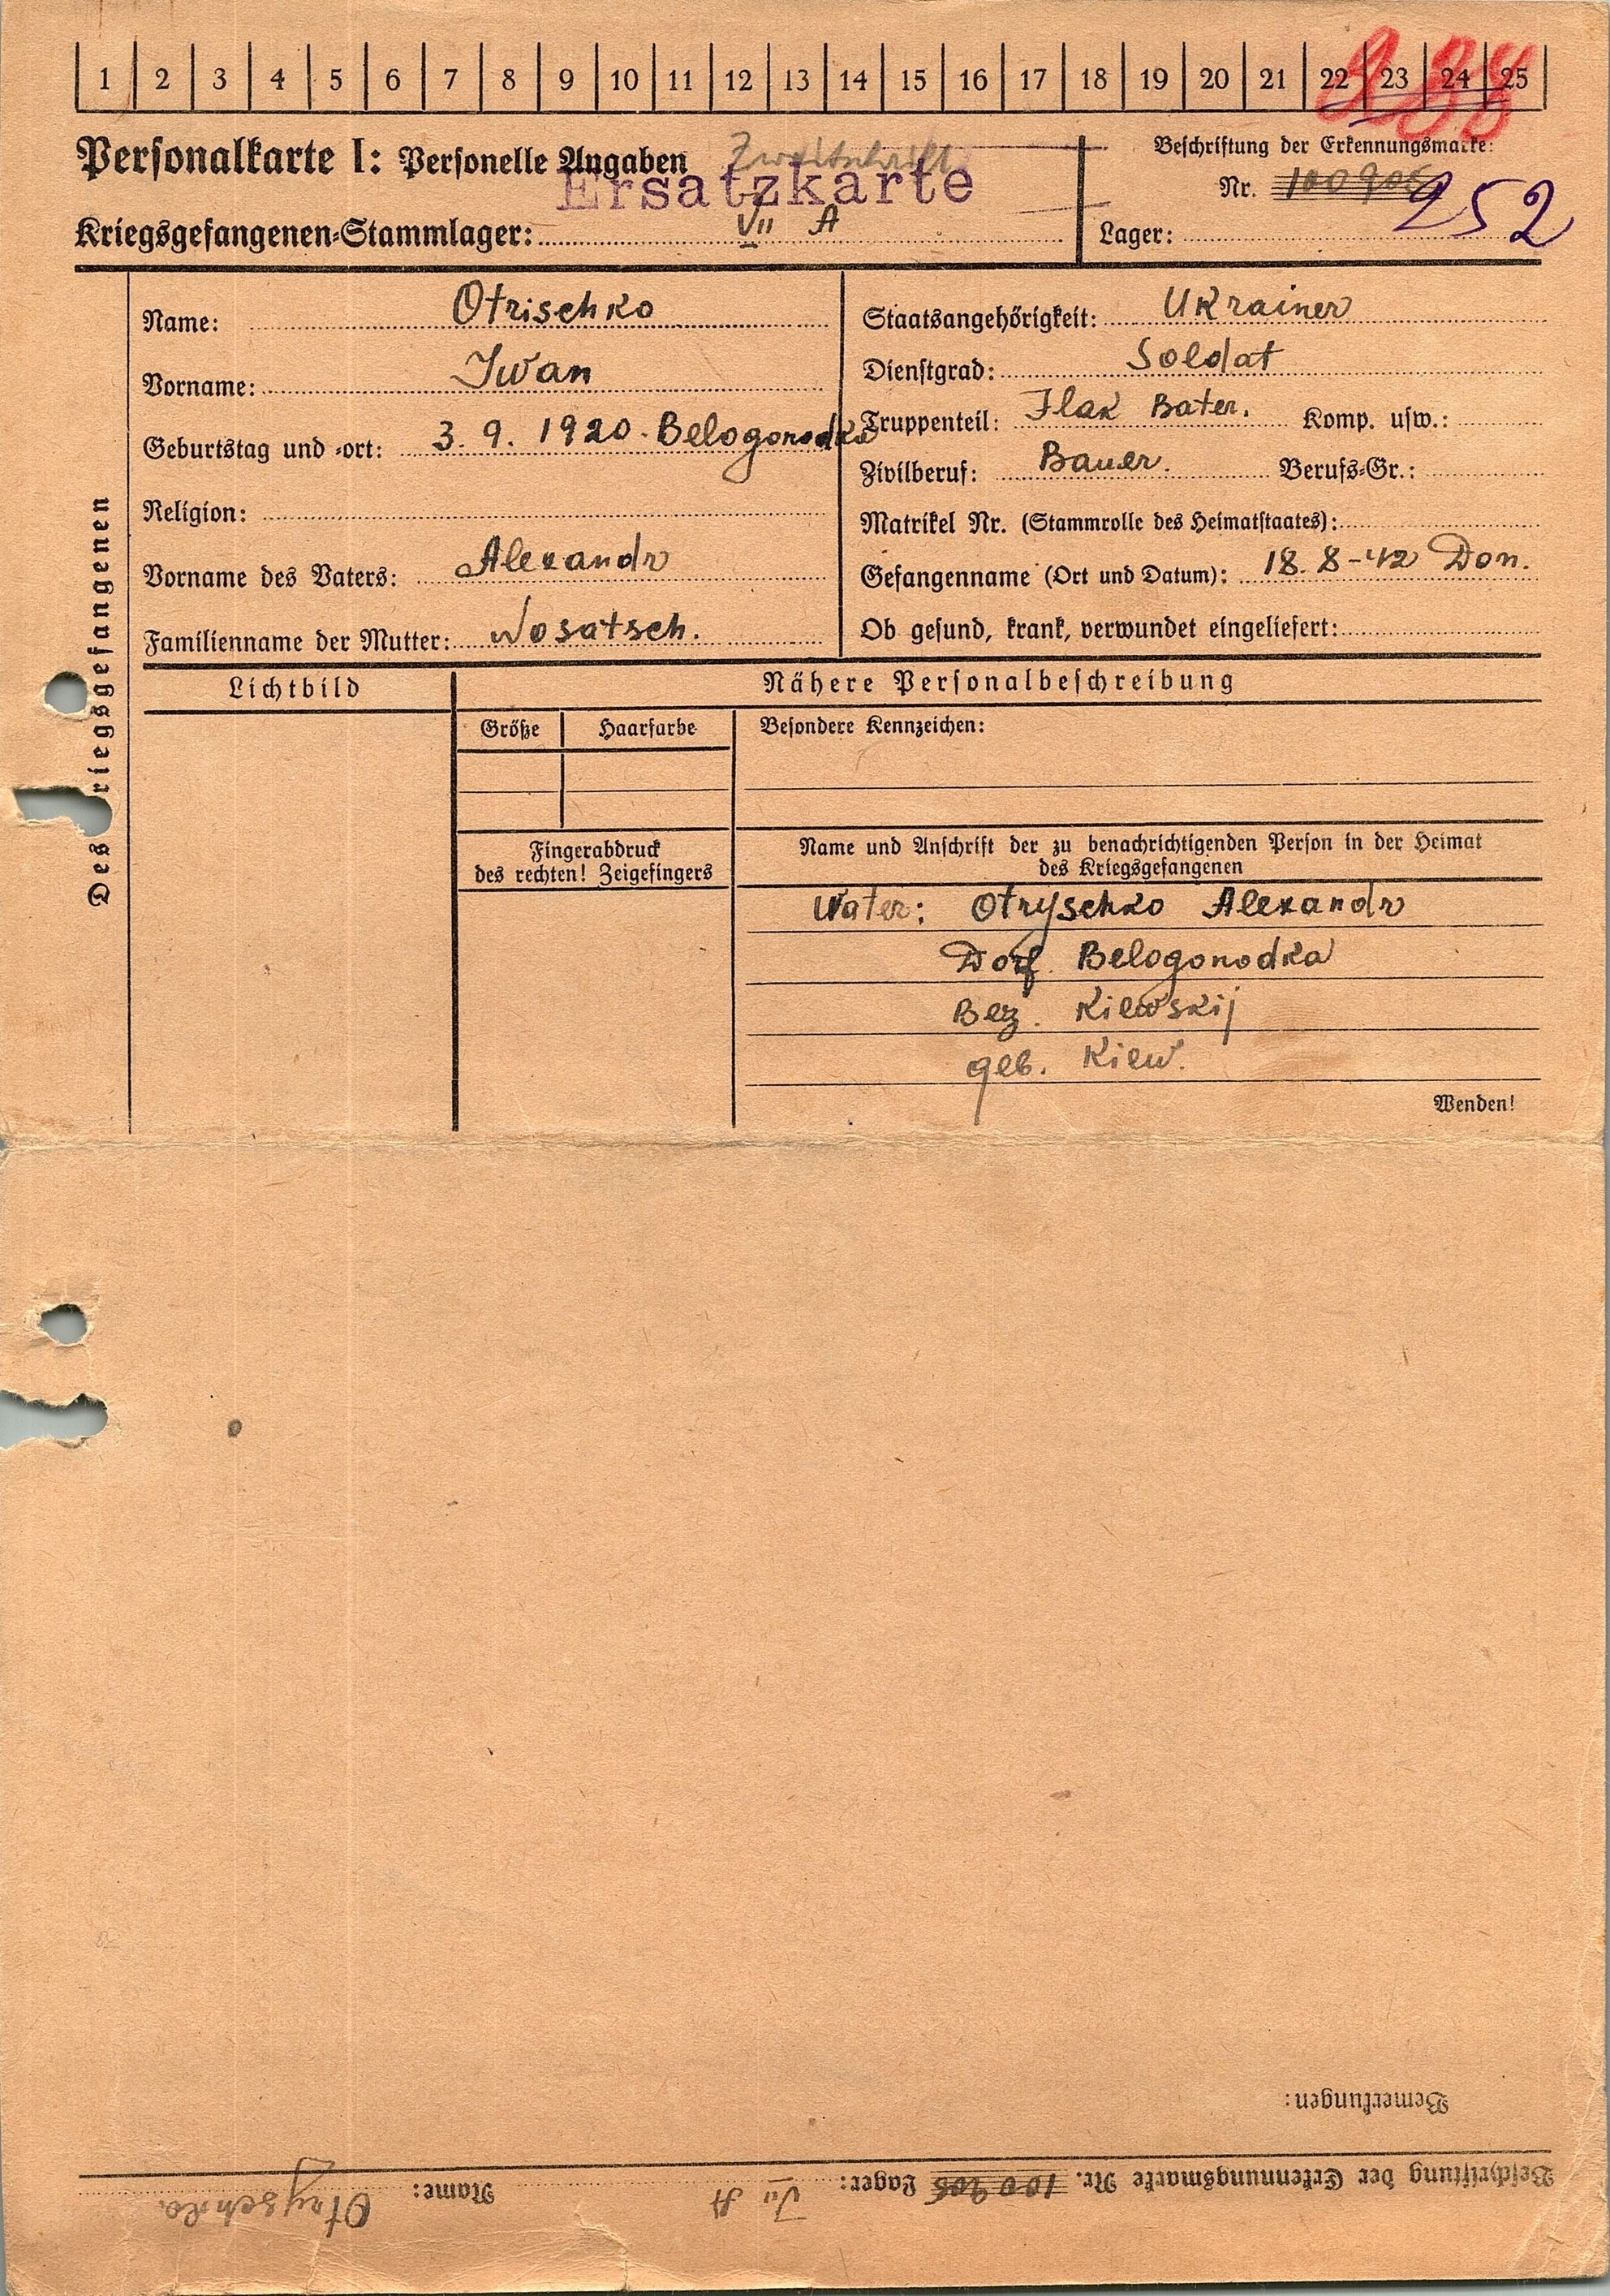 1 2 3 4 5 6 7 8 9 10 11 12 13 14 15 16 17 18 19 20 21 22 23 24 25
Personalkarte I: Personelle Angaben
Zweitschrift
Ersatzkarte
Kriegsgefangenen-Stammlager: VII A
Beschriftung der Erkennungsmarke:
Nr. 252
Lager:
Des Kriegsgefangenen
Name: Otrischko
Vorname: Iwan
Geburtstag und -ort: 3. 9. 1920. Belogorodka
Religion:
Vorname des Vaters: Alexandr
Familienname der Mutter: Nosatsch.
Staatsangehörigkeit: Ukrainer
Dienstgrad: Soldat
Truppenteil: Flak Bater. Komp. usw.:
Zivilberuf: Bauer. Berufs-Gr.:
Matrikel Nr. (Stammrolle des Heimatstaates):
Gefangenname (Ort und Datum): 18. 8-42 Don.
Ob gesund, krank, verwundet eingeliefert:
Lichtbild
Nähere Personalbeschreibung
Größe Haarfarbe Besondere Kennzeichen:
Fingerabdruck
des rechten! Zeigefingers
Name und Anschrift der zu benachrichtigenden Person in der Heimat
des Kriegsgefangenen
Vater: Otryschko Alexandr
Dorf Belogorodka
Bez. Kiewskij
geb. Kiew.
Wenden!
Bemerkungen:
Beschriftung der Erkennungsmarke Nr. 100906 Lager: VII A Name: Otryschko.